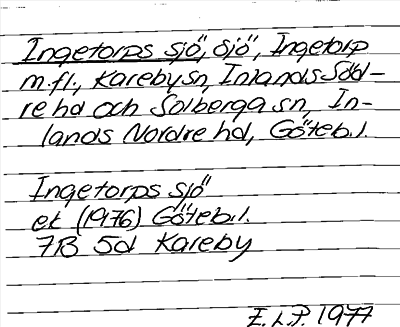 Ingetorps sjö, sjö, Ingetorp
m.fl., Kareby sn, Inlands Söd-
re hd och Solberga sn, In-
lands Nordre hd, Göteb.l.
Ingetorps sjö
ek (1976) Göteb.l.
7B 5d Kareby
E.L.P. 1977